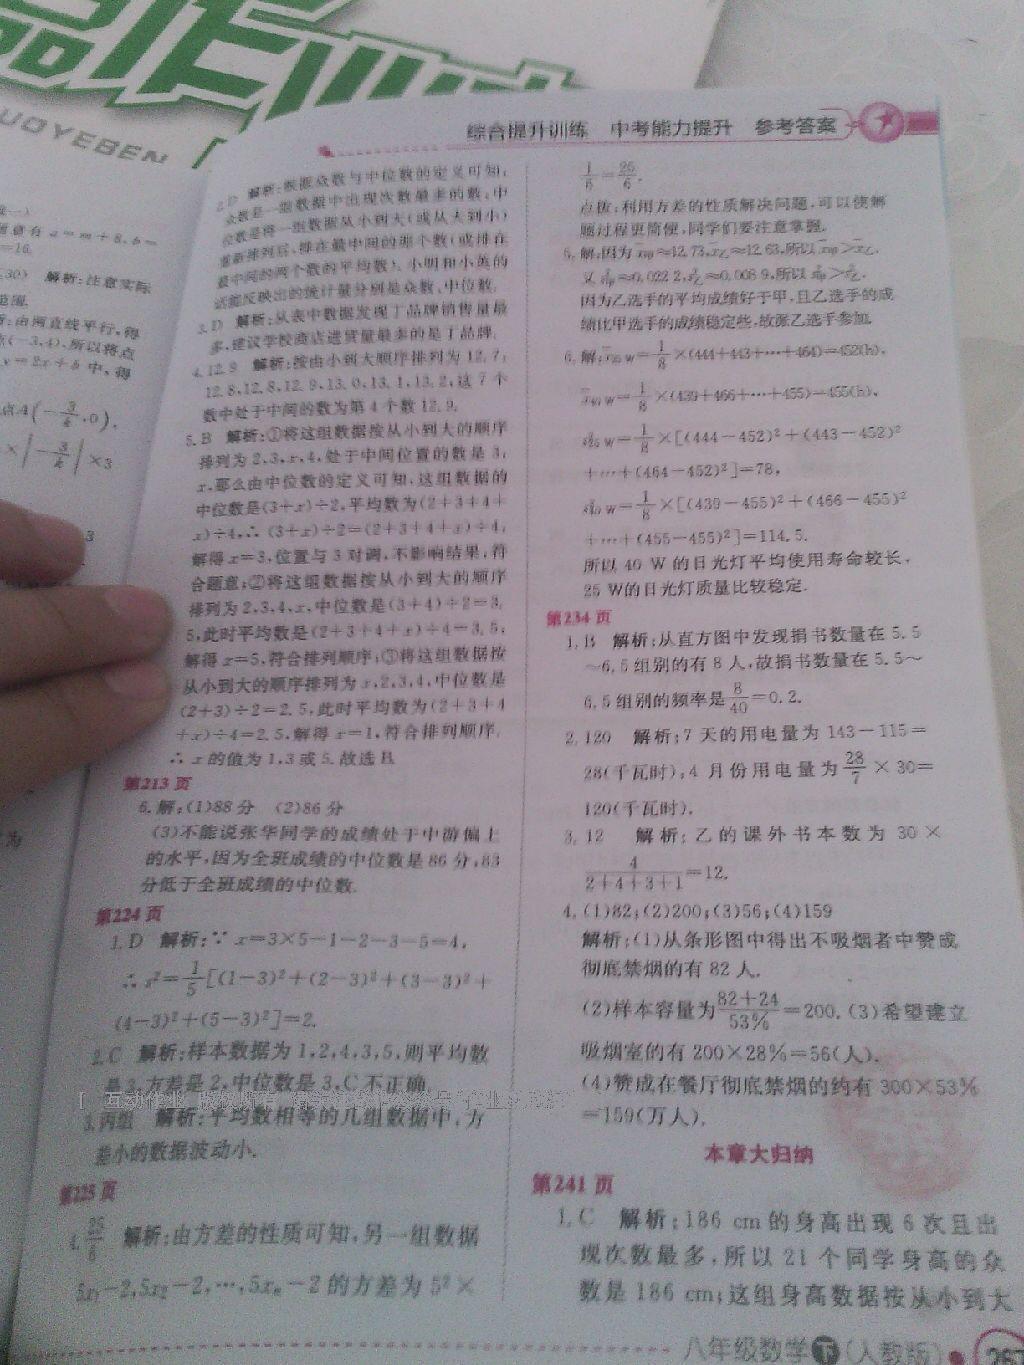 UOYEBEN
综合提升训练 中考能力提升 参考答案
随着有 a=m+8,b=
=16.
,30) 解析:注意实际
范围.
析:由两直线平行,得
点(-3,4),所以将点
y=2x+b 中,得
点A(-3/k,0),
×|-3/k|×3
2.D 解析:根据众数与中位数的定义可知:
众数是一组数据中出现次数最多的数,中
位数是将一组数据从小到大(或从大到小)
重新排列后,排在最中间的那个数(或排在
最中间的两个数的平均数),小明和小英的
话能反映出的统计量分别是众数、中位数.
3.D 解析:从表中数据发现丁品牌销售量最
多,建议学校商店进货量最多的是丁品牌.
4.12.9 解析:按由小到大顺序排列为12.7,
12.8,12.8,12.9,13.0,13.1,13.2,这7个
数中处于中间的数为第4个数12.9.
5.B 解析:①将这组数据按从小到大的顺序
排列为2,3,x,4,处于中间位置的数是3,
x,那么由中位数的定义可知,这组数据的
中位数是(3+x)÷2,平均数为(2+3+4+
x)÷4,∴(3+x)÷2=(2+3+4+x)÷4,
解得x=3,位置与3对调,不影响结果,符
合题意;②将这组数据按从小到大的顺序
排列为2,3,4,x,中位数是(3+4)÷2=3.
5,此时平均数是(2+3+4+x)÷4=3.5,
解得x=5,符合排列顺序;③将这组数据按
从小到大的顺序排列为x,2,3,4,中位数是
(2+3)÷2=2.5,此时平均数为(2+3+4
+x)÷4=2.5,解得x=1,符合排列顺序.
∴x的值为1,3或5.故选B.
第213页
6.解:(1)88分 (2)86分
(3)不能说张华同学的成绩处于中游偏上
的水平,因为全班成绩的中位数是86分,83
分低于全班成绩的中位数.
第224页
1.D 解析:∵x=3×5-1-2-3-5=4,
∴s²=1/5[(1-3)²+(2-3)²+(3-3)²+
(4-3)²+(5-3)²]=2.
2.C 解析:样本数据为1,2,4,3,5,则平均数
是3,方差是2,中位数是3,C不正确.
3.丙组 解析:平均数相等的几组数据中,方
差小的数据波动小.
第225页
4.25/6 解析:由方差的性质可知,另一组数据
5x₁-2,5x₂-2,…,5xₙ-2的方差为5²×
1/6=25/6.
点拨:利用方差的性质解决问题,可以使解
题过程更简便,同学们要注意掌握.
5.解:因为x̄甲≈12.73,x̄乙≈12.63,所以x̄甲>x̄乙.
又s²甲≈0.022 2,s²乙≈0.008 9,所以s²甲>s²乙.
因为乙选手的平均成绩好于甲,且乙选手的成
绩比甲选手的成绩稳定些,故派乙选手参加.
6.解:x̄25 W=1/8×(444+443+…+464)=452(h),
x̄40 W=1/8×(439+466+…+455)=455(h),
s²25 W=1/8×[(444-452)²+(443-452)²
+…+(464-452)²]=78,
s²40 W=1/8×[(439-455)²+(466-455)²
+…+(455-455)²]=114.5.
所以40 W的日光灯平均使用寿命较长,
25 W的日光灯质量比较稳定.
第234页
1.B 解析:从直方图中发现捐书数量在5.5
～6.5组别的有8人,故捐书数量在5.5～
6.5组别的频率是8/40=0.2.
2.120 解析:7天的用电量为143-115=
28(千瓦时),4月份用电量为28/7×30=
120(千瓦时).
3.12 解析:乙的课外书本数为30×
4/(2+4+3+1)=12.
4.(1)82;(2)200;(3)56;(4)159
解析:(1)从条形图中得出不吸烟者中赞成
彻底禁烟的有82人.
(2)样本容量为(82+24)/53%=200.(3)希望建立
吸烟室的有200×28%=56(人).
(4)赞成在餐厅彻底禁烟的约有300×53%
=159(万人).
本章大归纳
第241页
1.C 解析:186 cm的身高出现6次且出
现次数最多,所以21个同学身高的众
数是186 cm;这组身高数据按从小到大
八年级数学下(人教版)